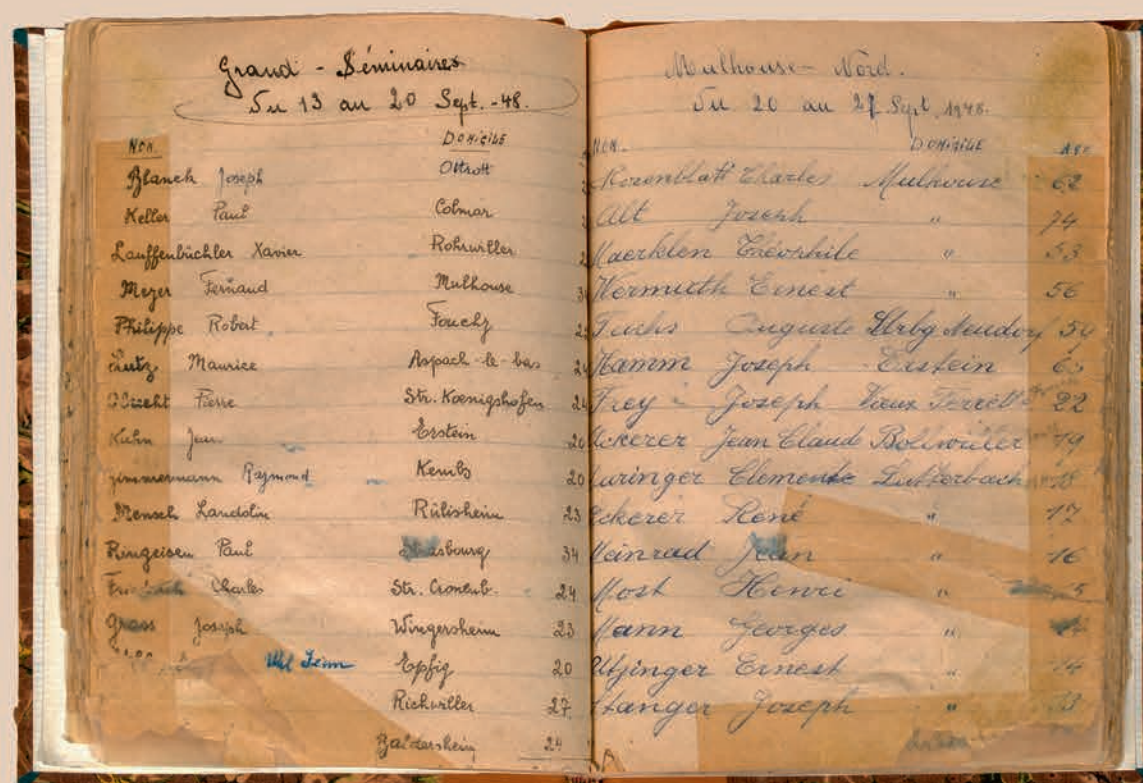 Grand - Séminaires
Du 13 au 20 Sept. -48.
NOM. DOMICILE
Blanck Joseph Ottrott
Keller Paul Colmar
Lauffenbüchler Xavier Rohrwiller
Meyer Fernand Mulhouse
Philippe Robert Fouchy
Maurice Aspach-le-bas 24
Pierre Str. Kœnigshofen 24
Kuhn Jean Erstein 20
Zimmermann Raymond Kembs 20
Mensch Landolin Rülisheim 23
Ringeisen Paul Strasbourg 34
Charles Str. Cronenb. 24
Gross Joseph Wingersheim 23
Epfig 20
Richwiller 27
Baldersheim
Mulhouse - Nord.
Du 20 au 27 Sept. 1948.
NOM. DOMICILE AGE
Rosenblatt Charles Mulhouse 62
Alt Joseph " 74
Maerklen Théophile " 53
Wermuth Ernest " 56
Fuchs Auguste Strbg Neudorf 54
Hamm Joseph Erstein
Frey Joseph Vieux Ferrette 22
Ackerer Jean Claude Bollwiller 19
Clemente Lutterbach 18
Eckerer René " 17
Meinrad Jean " 16
Most Henri "
Mann Georges "
Utzinger Ernest " 14
Stanger Joseph " 13